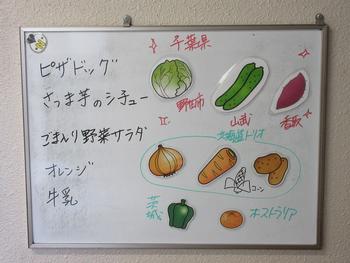 千葉県
ピザドッグ
さつま芋のシチュー
ごまんり野菜サラダ
オレンジ
牛乳
野田市
山武
香取
北海道トリオ
コーン
茨城
オーストラリア